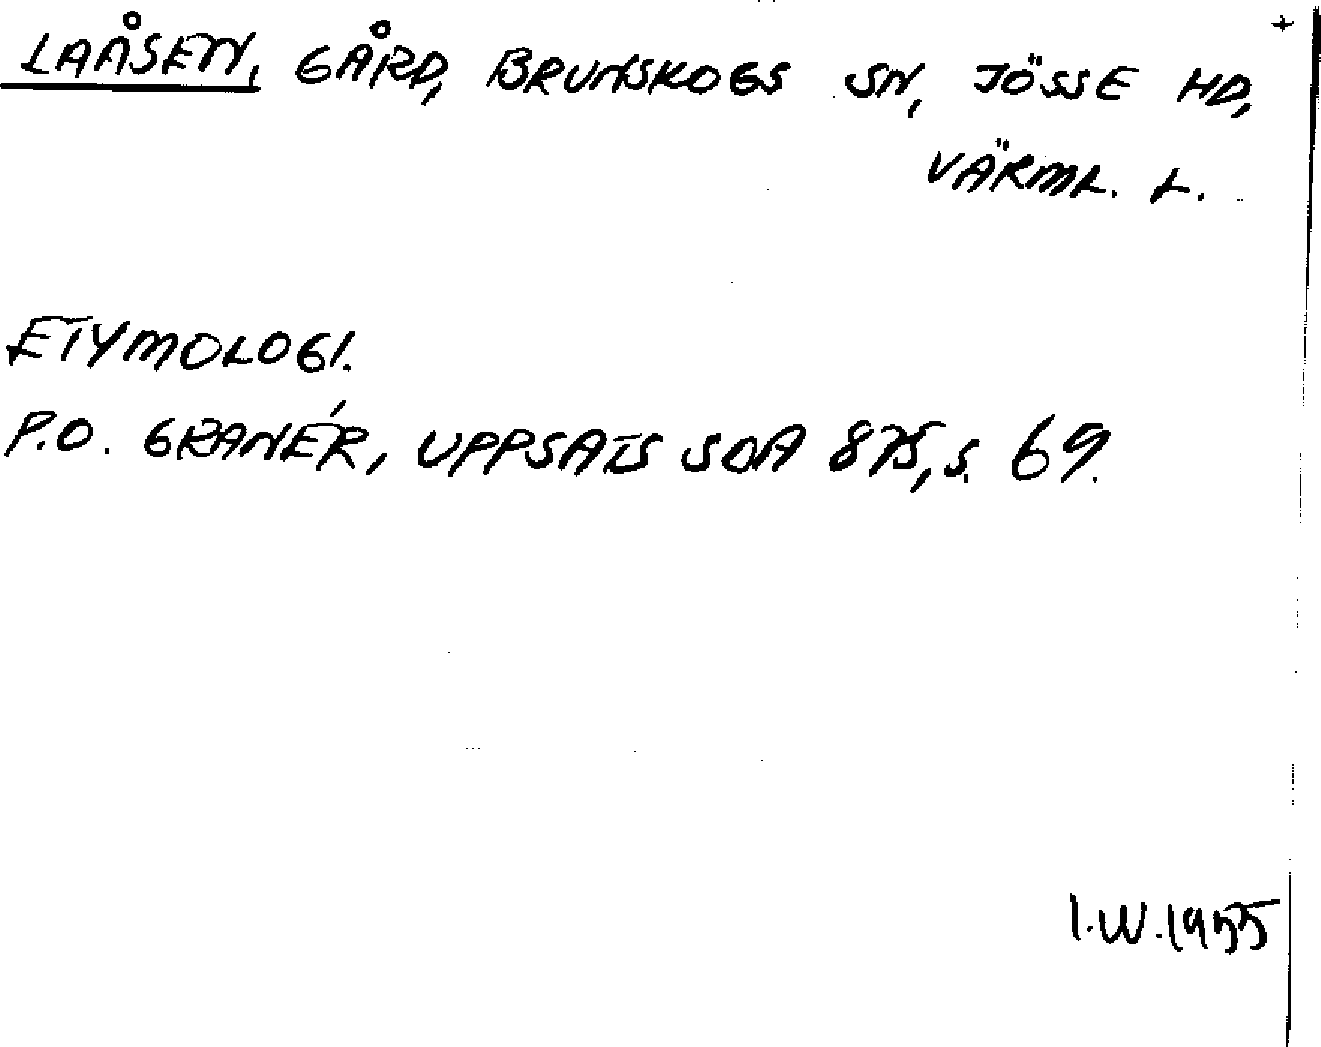 LAÅSEN, GÅRD, BRUNSKOGS SN, JÖSSE HD, +
VÄRML. L.
ETYMOLOGI.
P.O. GRANÉR, UPPSATS SOA 875, S. 69.
I.W. 1955